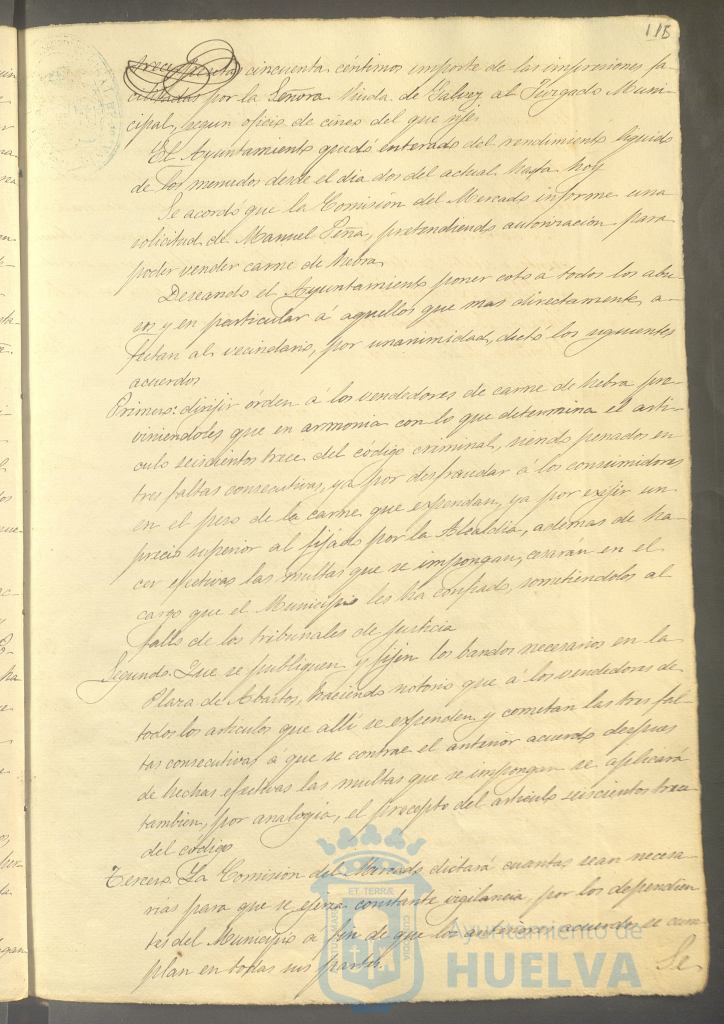 118
trece pesetas cincuenta céntimos importe de las impresiones fa-
cilitadas por la Señora Viuda de Galvez al Juzgado Muni-
cipal, segun oficio de cinco del que rije
El Ayuntamiento quedó enterado del rendimiento liquido
de los menudos desde el dia dos del actual hasta hoy
Se acordó que la Comisión del Mercado informe una
solicitud de Manuel Peña, pretendiendo autorizacion para
poder vender carne de hebra
Deseando el Ayuntamiento poner coto á todos los abu-
sos y en particular á aquellos que mas directamente a-
fectan al vecindario, por unanimidad, dictó los siguientes
acuerdos
Primero: dirijir orden á los vendedores de carne de hebra pre-
viniendoles que en armonia con lo que determina el arti-
culo seiscientos trece del codigo criminal, siendo penados en
tres faltas consecutivas, ya por defraudar á los consumidores
en el peso de la carne que expendan, ya por exijir un
precio superior al fijado por la Alcaldia, ademas de ha-
cer efectivas las multas que se impongan, cesarán en el
cargo que el Municipio les ha confiado, sometiéndolos al
fallo de los tribunales de justicia
Segundo. Que se publiquen y fijen los bandos necesarios en la
Plaza de Abastos, haciendo notorio que á los vendedores de
todos los articulos que allí se expenden y cometan las tres fal-
tas consecutivas á que se contrae el anterior acuerdo despues
de hechas efectivas las multas que se impongan se aplicará
tambien, por analogia, el precepto del articulo seiscientos trece
del codigo
Tercero. La Comision del Mercado dictará cuantas sean necesa-
rias para que se ejerza constante vigilancia, por los dependien-
tes del Municipio á fin de que los anteriores acuerdos se cum-
plan en todas sus partes.
Se
ET TERRÆ
Ayuntamiento de
HUELVA